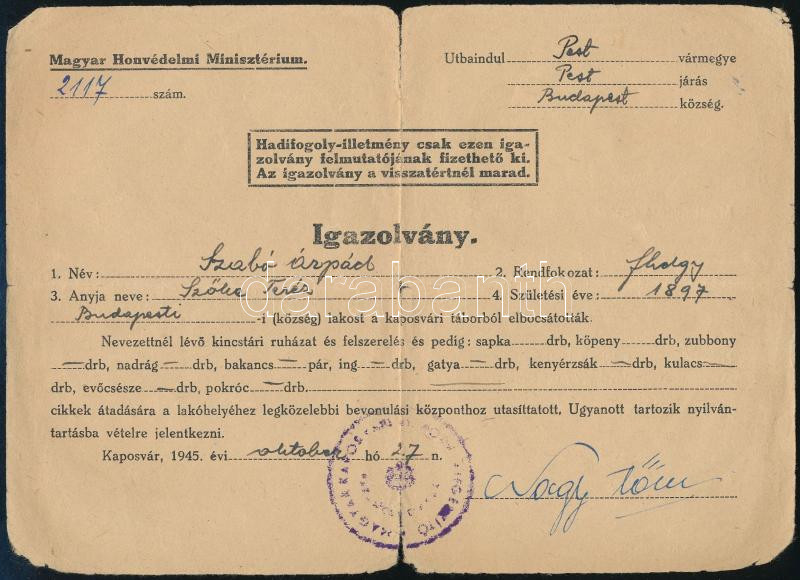 Magyar Honvédelmi Minisztérium.
2117 szám.
Utbaindul Pest vármegye
Pest járás
Budapest község.
Hadifogoly-illetmény csak ezen iga-
zolvány felmutatójának fizethető ki.
Az igazolvány a visszatértnél marad.
Igazolvány.
1. Név: Szabó Árpád 2. Rendfokozat: fhdgy
3. Anyja neve: Teréz 4. Születési éve: 1897
Budapesti -i (község) lakost a kaposvári táborból elbocsátották.
Nevezettnél lévő kincstári ruházat és felszerelés és pedig: sapka — drb, köpeny — drb, zubbony
— drb, nadrág — drb, bakancs — pár, ing — drb, gatya — drb, kenyérzsák — drb, kulacs —
drb, evőcsésze — drb, pokróc — drb.
cikkek átadására a lakóhelyéhez legközelebbi bevonulási központhoz utasíttatott, Ugyanott tartozik nyilván-
tartásba vételre jelentkezni.
Kaposvár, 1945. évi oktober hó 27 n.
Nagy
darabanth